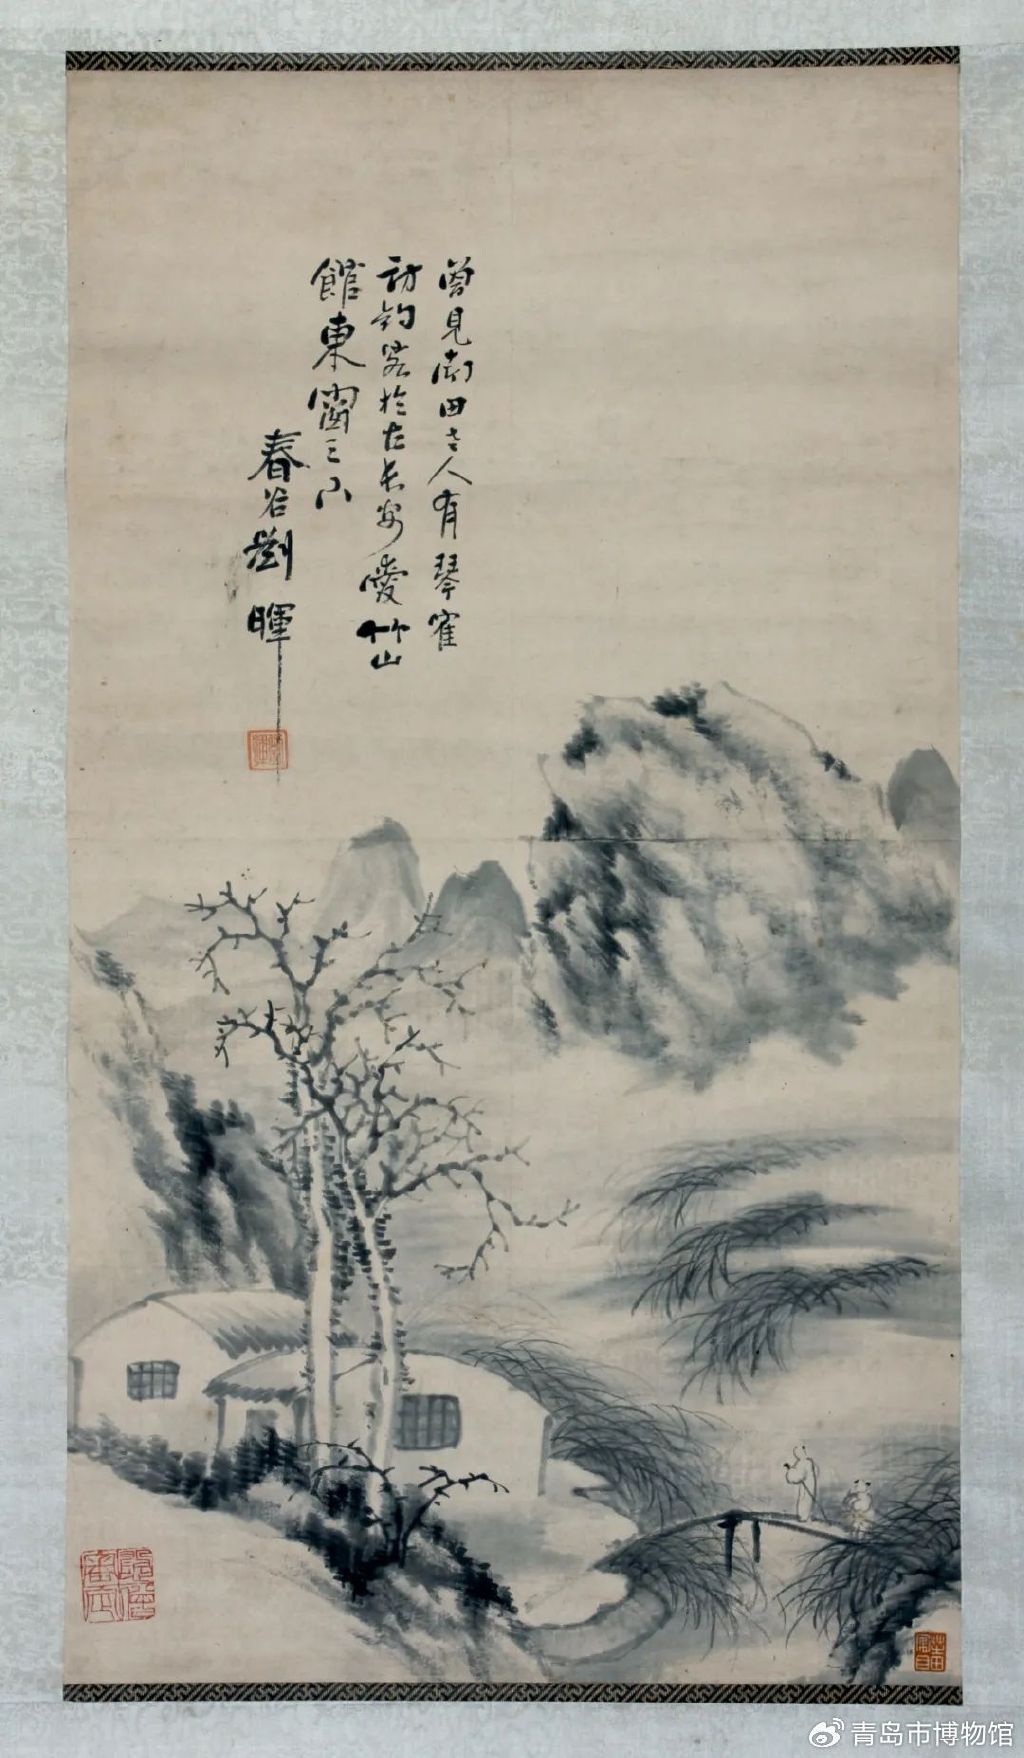 曾見南田老人有琴隺
訪釣客於古長安愛竹山
館東窗之下
春谷劉暉
青岛市博物馆